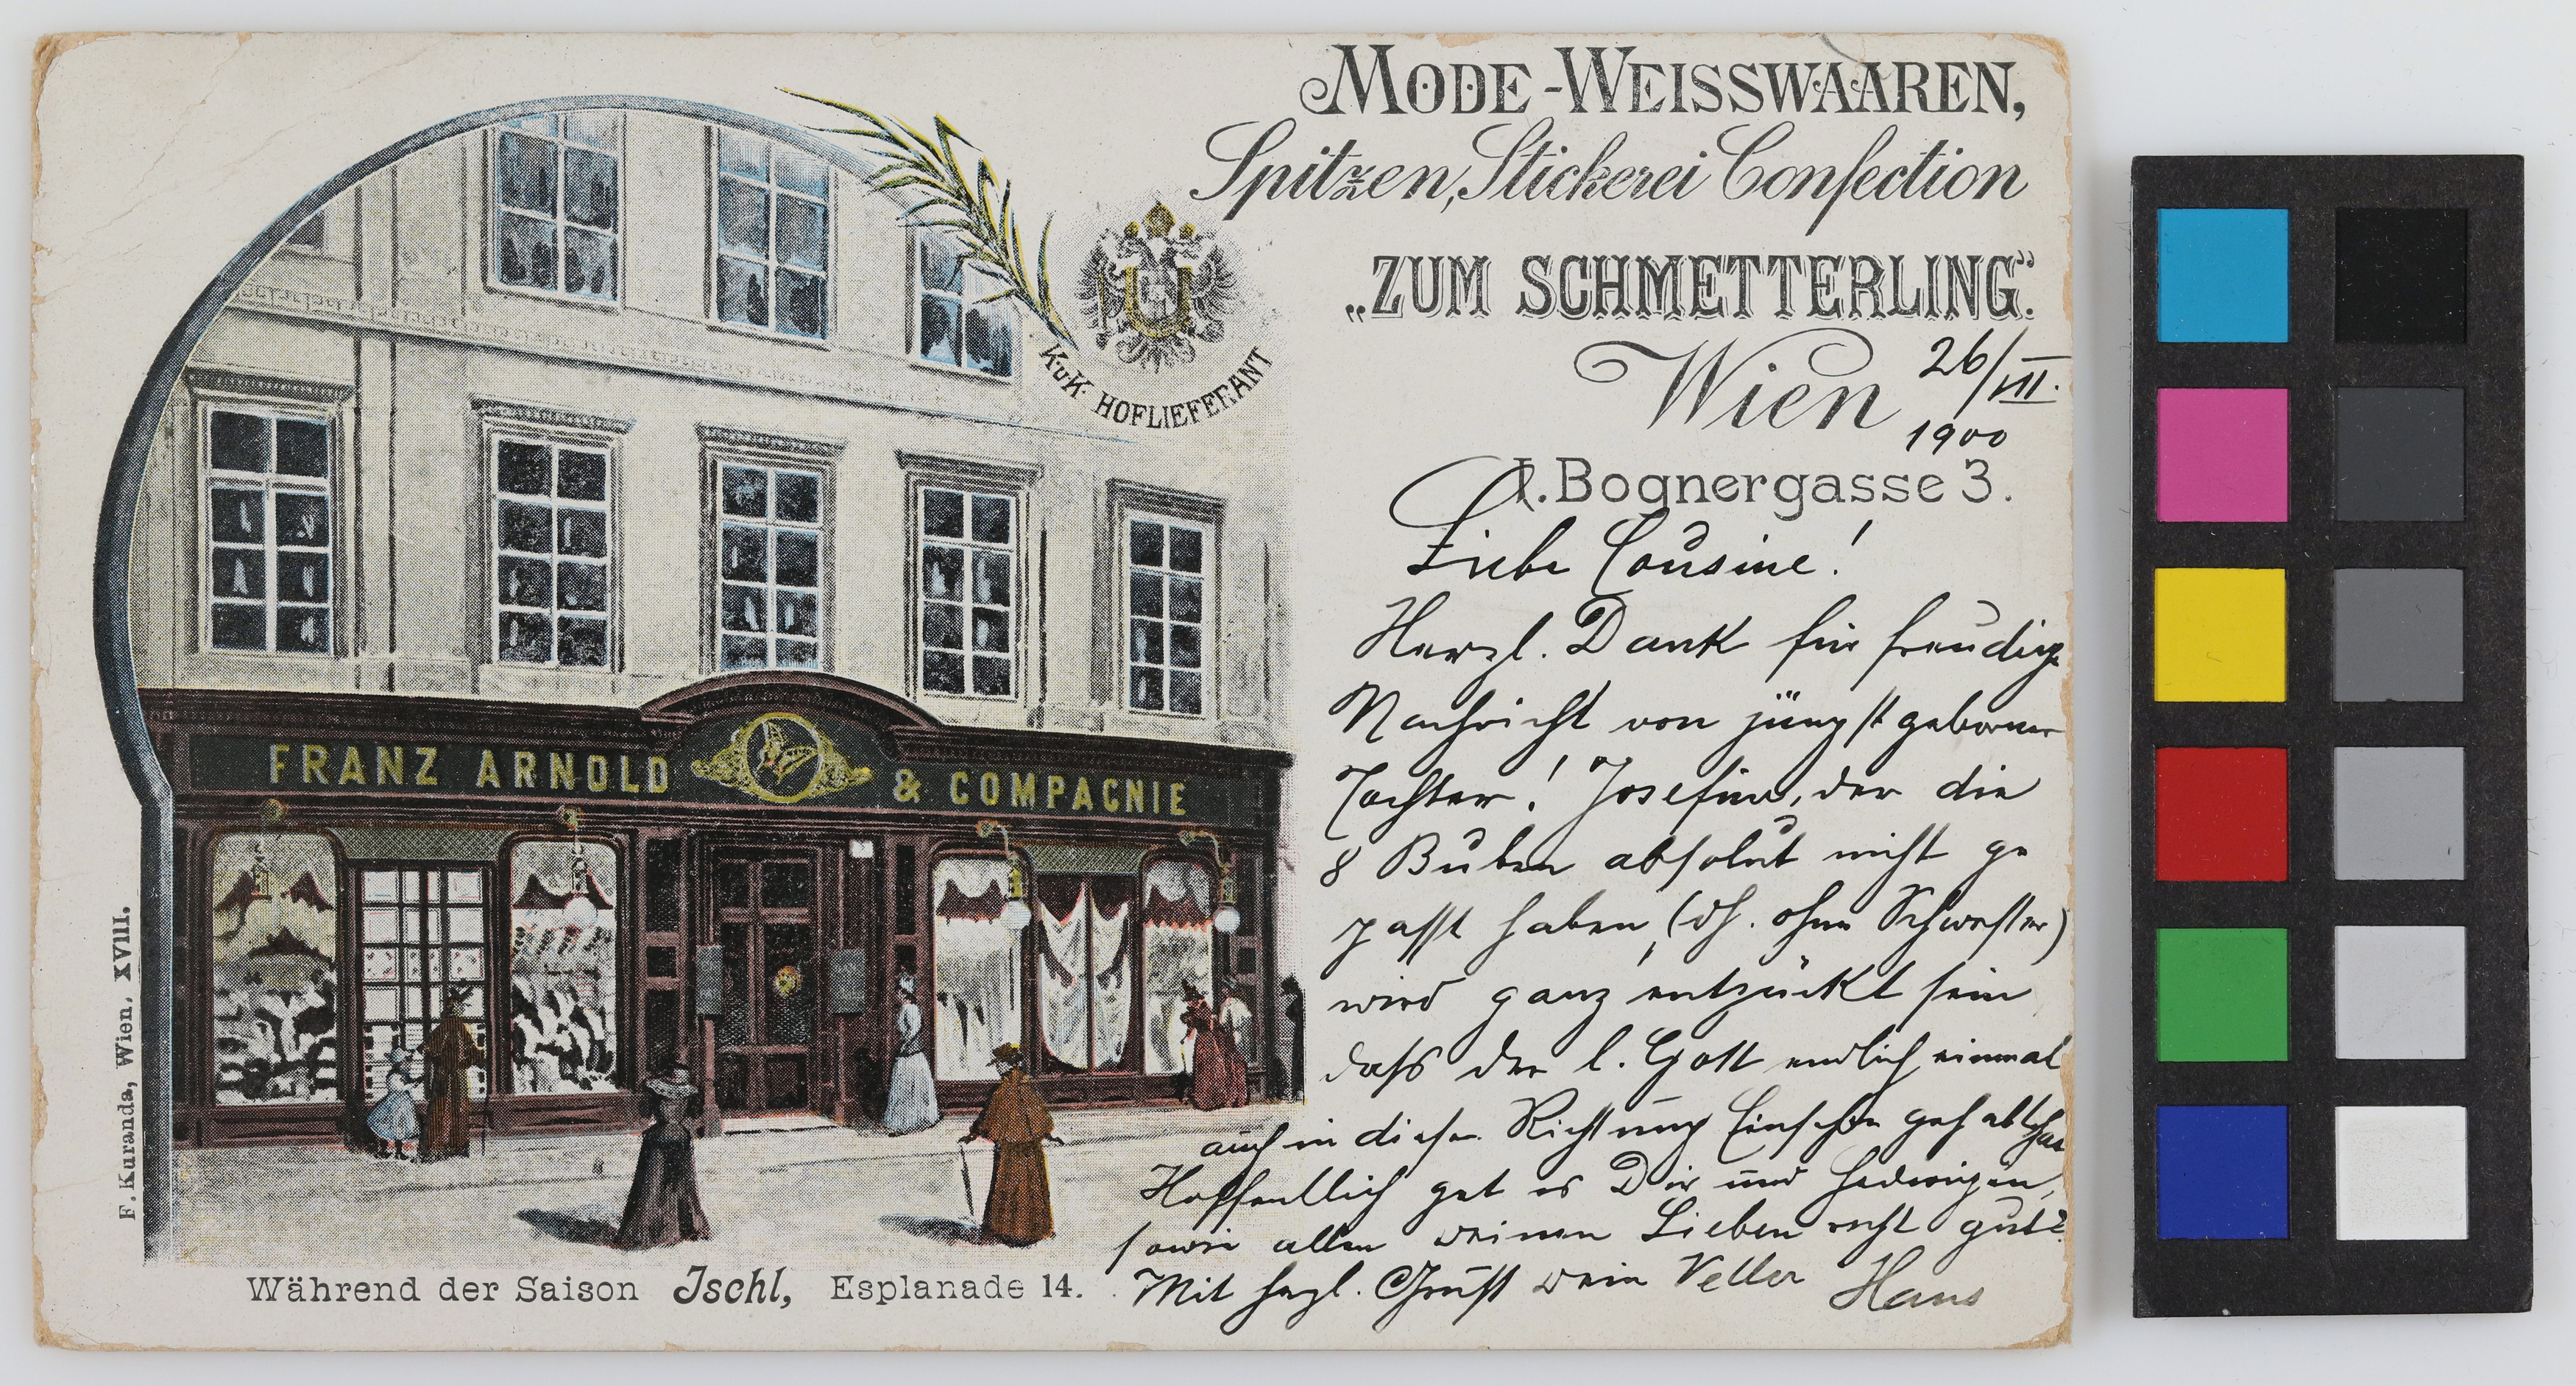 MODE-WEISSWAAREN,
Spitzen, Stickerei Confection
„ZUM SCHMETTERLING“.
Wien 26/VIII.
1900
I. Bognergasse 3.
K.u.K. HOFLIEFERANT
FRANZ ARNOLD & COMPAGNIE
Liebe Cousine!
Herzl. Dank für freudige
Nachricht von jüngst geborner
Tochter! Josefine, der die
8 Buben absolut nicht ge
passt haben, (dh. ohne Schwester)
wird ganz entzückt sein
dass der l. Gott endlich einmal
auch in dieser Richtung Einsehen gehabt hat
Hoffentlich get es Dir und Hedwigen,
sowie allen deinen Lieben recht gut?
Mit hzl. Gruß dein Vetter Hans
Während der Saison Ischl, Esplanade 14.
F. Kuranda, Wien, XVIII.